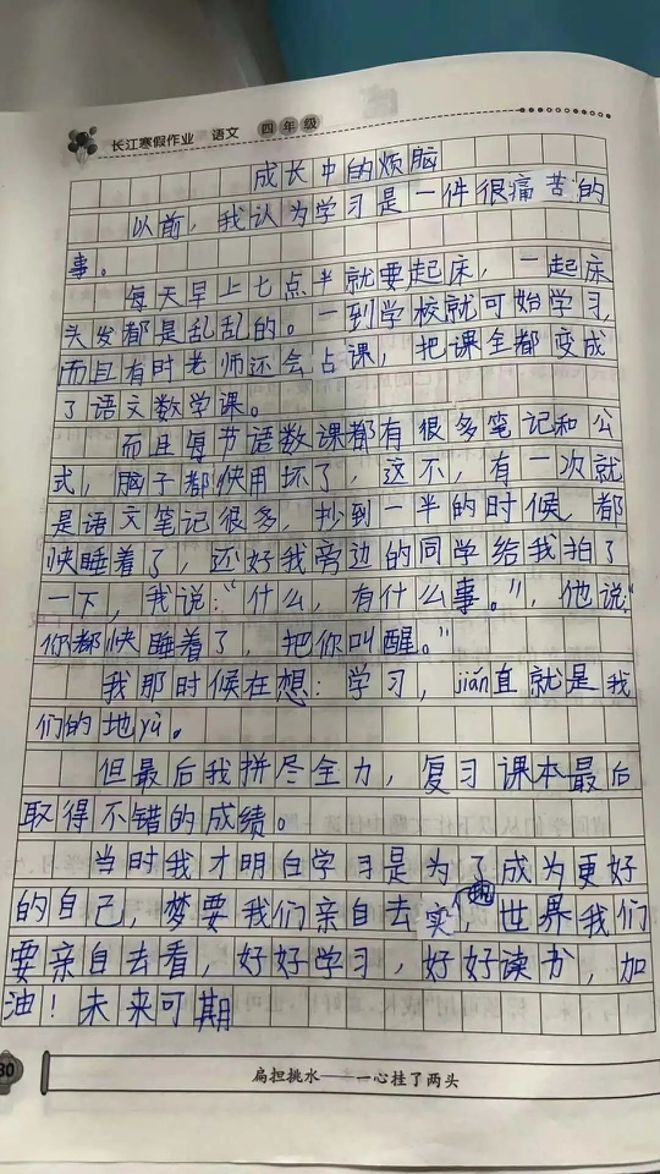 长江寒假作业 语文 四年级
成长中的烦脑
以前，我认为学习是一件很痛苦的
事。
每天早上七点半就要起床，一起床
头发都是乱乱的。一到学校就可始学习，
而且有时老师还会占课，把课全都变成
了语文数学课。
而且每节语数课都有很多笔记和公
式，脑子都快用坏了，这不，有一次就
是语文笔记很多，抄到一半的时候，都
快睡着了，还好我旁边的同学给我拍了
一下，我说：“什么，有什么事。”，他说：“
你都快睡着了，把你叫醒。”
我那时候在想：学习，jiǎn直就是我
们的地yù。
但最后我拼尽全力，复习课本最后
取得不错的成绩。
当时我才明白学习是为了成为更好
的自己，梦要我们亲自去实，世界我们
要亲自去看，好好学习，好好读书，加
油！未来可期
30
扁担挑水——一心挂了两头